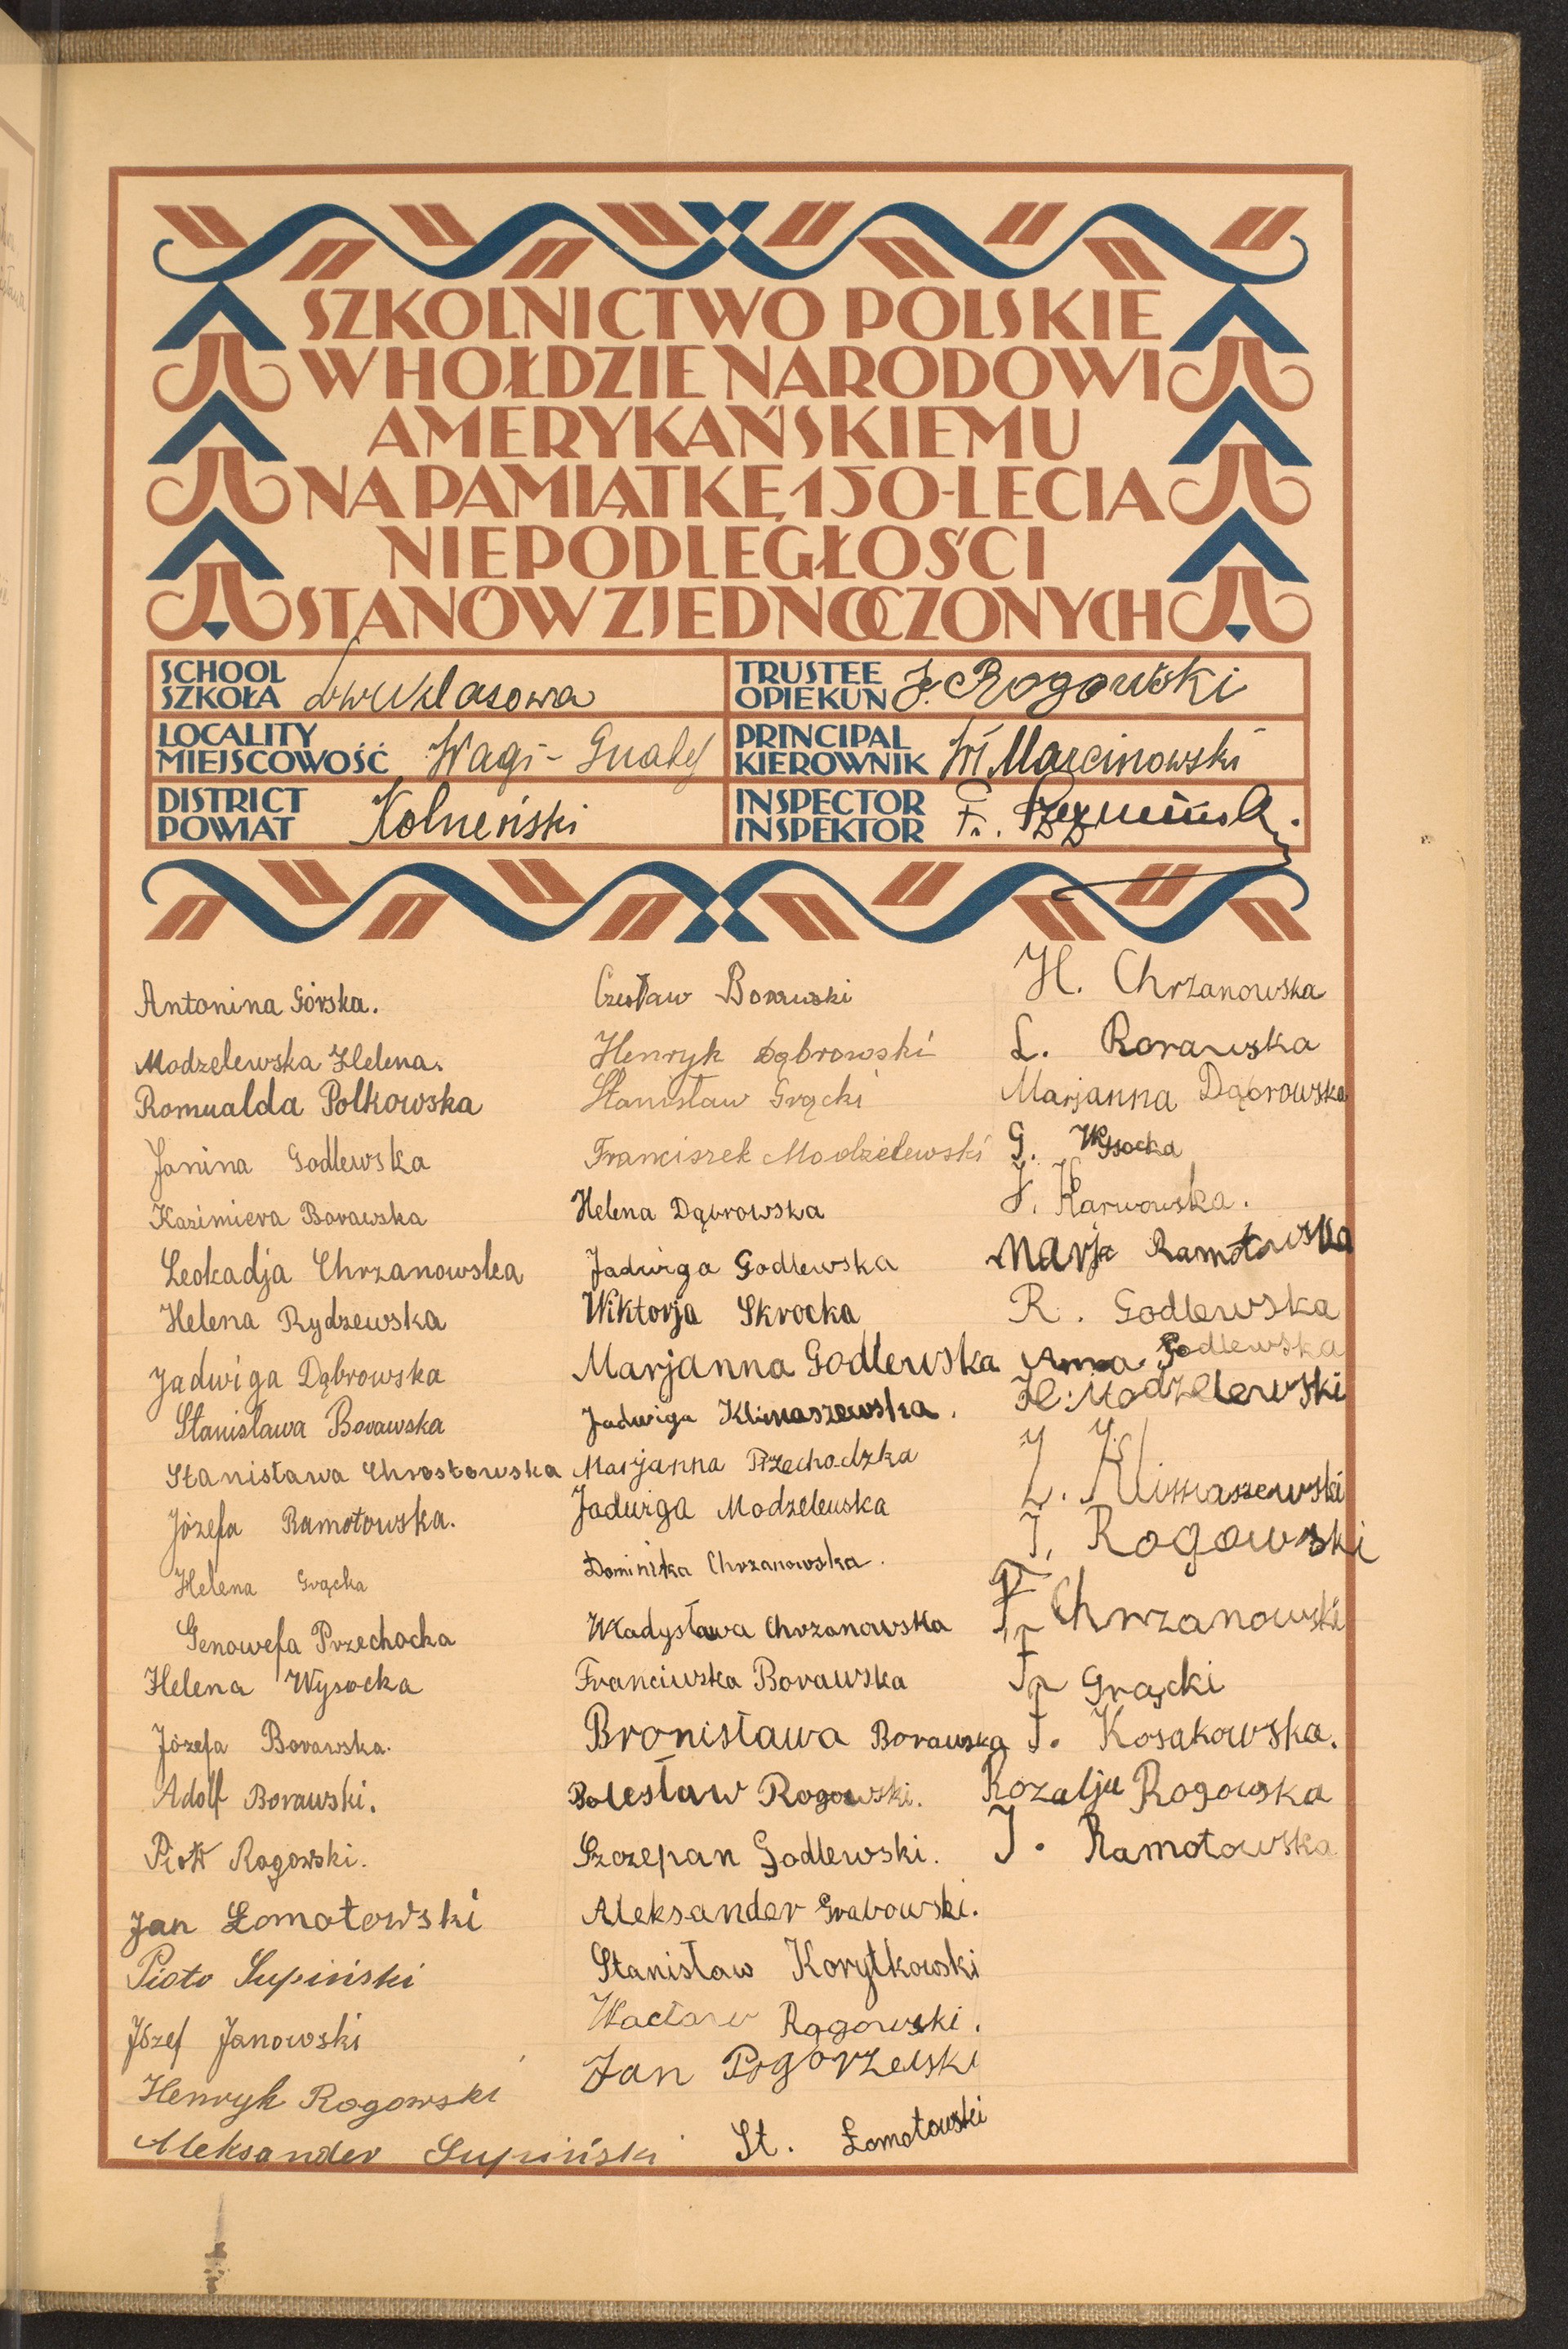 SZKOLNICTWO POLSKIE
W HOŁDZIE NARODOWI
AMERYKAŃSKIEMU
NA PAMIĄTKĘ 150-LECIA
NIEPODLEGŁOŚCI
STANÓW ZJEDNOCZONYCH
SCHOOL
SZKOŁA Dwuklasowa
TRUSTEE
OPIEKUN J. Rogowski
LOCALITY
MIEJSCOWOŚĆ Wagi-Gnaty
PRINCIPAL
KIEROWNIK Wł. Marcinowski
DISTRICT
POWIAT Kolneński
INSPECTOR
INSPEKTOR Fr.
Antonina Górska.
Modzelewska Helena.
Romualda Polkowska
Janina Godlewska
Kazimiera Borawska
Leokadja Chrzanowska
Helena Rydzewska
Jadwiga Dąbrowska
Stanisława Borawska
Stanisława Chrostowska
Józefa Ramotowska.
Helena Grącka
Genowefa Przechocka
Helena Wysocka
Józefa Borawska.
Adolf Borawski.
Piotr Rogowski.
Jan Łomotowski
Piotr Supiński
Józef Janowski
Henryk Rogowski
Aleksander Supiński
Czesław Borawski
Henryk Dąbrowski
Stanisław Grącki
Franciszek Modzelewski
Helena Dąbrowska
Jadwiga Godlewska
Wiktorja Skrocka
Marjanna Godlewska
Jadwiga Klimaszewska.
Marjanna Przechodzka
Jadwiga Modzelewska
Dominika Chrzanowska.
Władysława Chrzanowska
Franciszka Borawska
Bronisława Borawska
Bolesław Rogowski.
Szczepan Godlewski.
Aleksander Grabowski.
Stanisław Korytkowski
Wacław Rogowski.
Jan Pogorzelski
St. Łomotowski
H. Chrzanowska
L. Borawska
Marjanna Dąbrowska
G. Wysocka
J. Karwowska.
Marja Ramotowska
R. Godlewska
Anna Godlewska
H. Modzelewski
Z. Klimaszewski
J. Rogowski
Fr Chrzanowski
Fr Grącki
F. Kosakowska.
Rozalja Rogowska
J. Ramotowska